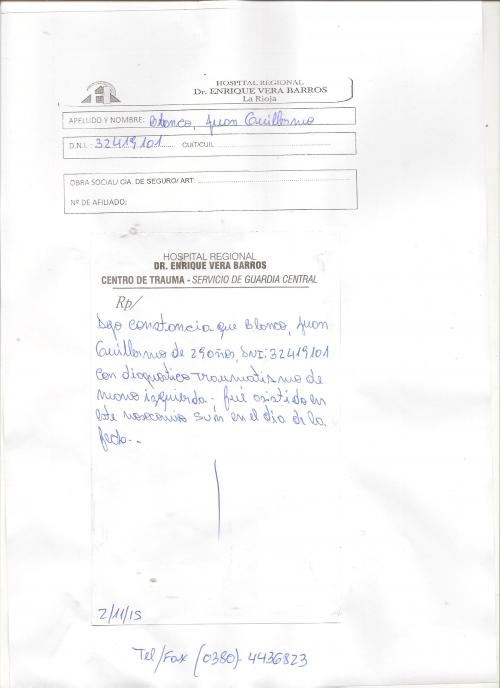 HOSPITAL REGIONAL
Dr. ENRIQUE VERA BARROS
La Rioja
APELLIDO Y NOMBRE: Blanco, Juan Guillermo
D.N.I. : 32419101 CUIT/CUIL
OBRA SOCIAL/ CIA. DE SEGURO/ ART:
Nº DE AFILIADO:
HOSPITAL REGIONAL
DR. ENRIQUE VERA BARROS
CENTRO DE TRAUMA - SERVICIO DE GUARDIA CENTRAL
Rp/
Dejo constancia que Blanco, Juan
Guillermo de 29 años, DNI: 32419101
con diagnóstico traumatismo de
mano izquierda. fué asistido en
este nosocomio en el día de la
fecha..
2/11/15
Tel/Fax (0380)- 4436823